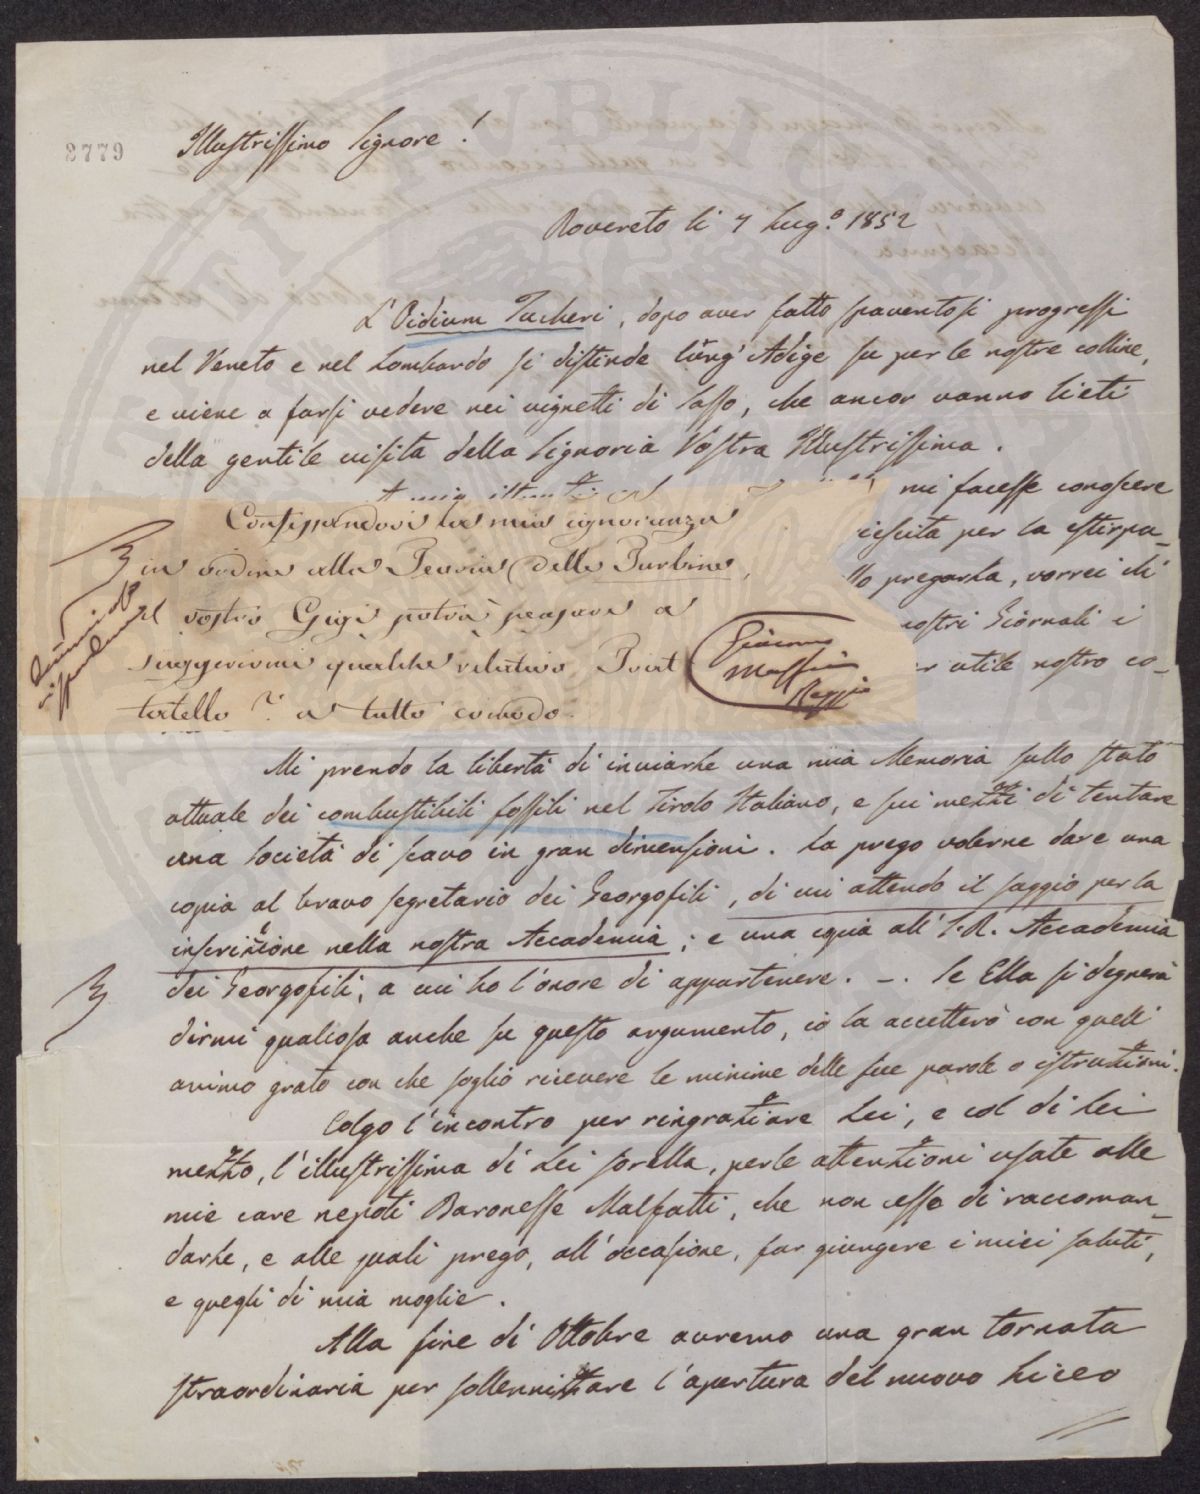 2779
Illustrissimo Signore!
Rovereto li 7 Lug.º 1852
L'Oidium Tucheri, dopo aver fatto spaventosi progressi
nel Veneto e nel Lombardo si distende lung'Adige su per le nostre colline,
e viene a farsi vedere nei vignetti di Sasso, che ancor vanno lieti
della gentile visita della Signoria Vostra Illustrissima.
mi facesse conoscere
iescita per la estirpa-
llo pregarla, vorrei di
nostri Giornali i
er utile nostro co-
Confessandovi la mia ignoranza
in ordine alla Teoria delle Turbine,
il vostro Gigi potrà pensare a
suggerirmi qualche relativo Trat
tatello? a tutto comodo.
Giacomo
Maffini
Reggio
Mi prendo la libertà di inviarle una mia Memoria sullo stato
attuale dei combustibili fossili nel Tirolo Italiano, e sui mezzi di tentare
una Società di scavo in gran dimensioni. La prego volerne dare una
copia al bravo segretario dei Georgofili, di cui attendo il saggio per la
inscrizione nella nostra Accademia; e una copia all'I.R. Accademia
dei Georgofili, a cui ho l'onore di appartenere. –. Se Ella si degnerà
dirmi qualcosa anche su questo argumento, io la accetterò con quell'
animo grato con che soglio ricevere le minime delle sue parole o istruzioni.
Colgo l'incontro per ringraziare Lei, e col di Lei
mezzo, l'illustrissima di Lei sorella, per le attenzioni usate alle
mie care nepoti Baronesse Malfatti, che non cesso di raccoman-
darle, e alle quali prego, all'occasione, far giungere i miei saluti,
e quegli di mia moglie.
Alla fine di Ottobre avremo una gran tornata
straordinaria per sollennizzare l'apertura del nuovo Liceo